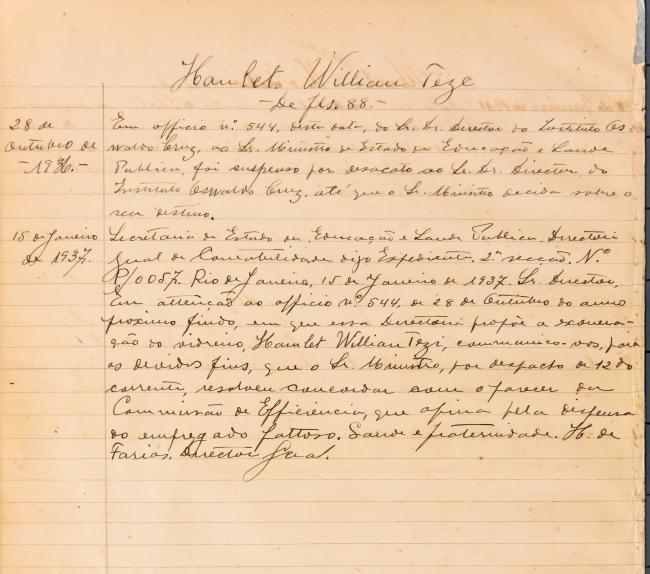 Hamlet. Willian Teze
- De fls. 88. -
28 de Outubro de - 1936. -
Em officio nº 544, desta data, do Sr. Dr. Director do Instituto Os-
waldo Cruz, ao Sr. Ministro de Estado da Educação e Saude
Publica, foi suspenso por desacato ao Sr. Dr. Director do
Instituto Oswaldo Cruz, até que o Sr. Ministro decida sobre o
seu destino.
15 de Janeiro de 1937.
Secretaria de Estado da Educação e Saude Publica. Directori
Geral de Contabilidade digo Expediente. 2ª secção. Nº
P/0057. Rio de Janeiro, 15 de Janeiro de 1937. Sr. Director,
Em attenção ao officio nº 544, de 28 de Outubro do anno
proximo findo, em que essa Directoria propõe a exonera-
ção do vidreiro, Hamlet Willian Tezi, communico-vos, para
os devidos fins, que o Sr. Ministro, por despacho de 12 do
corrente, resolveu concordar com o parecer da
Commissão de Efficiencia, que opina pela dispensa
do empregado faltoso. Saude e fraternidade. H. de
Farias. Director Geral.